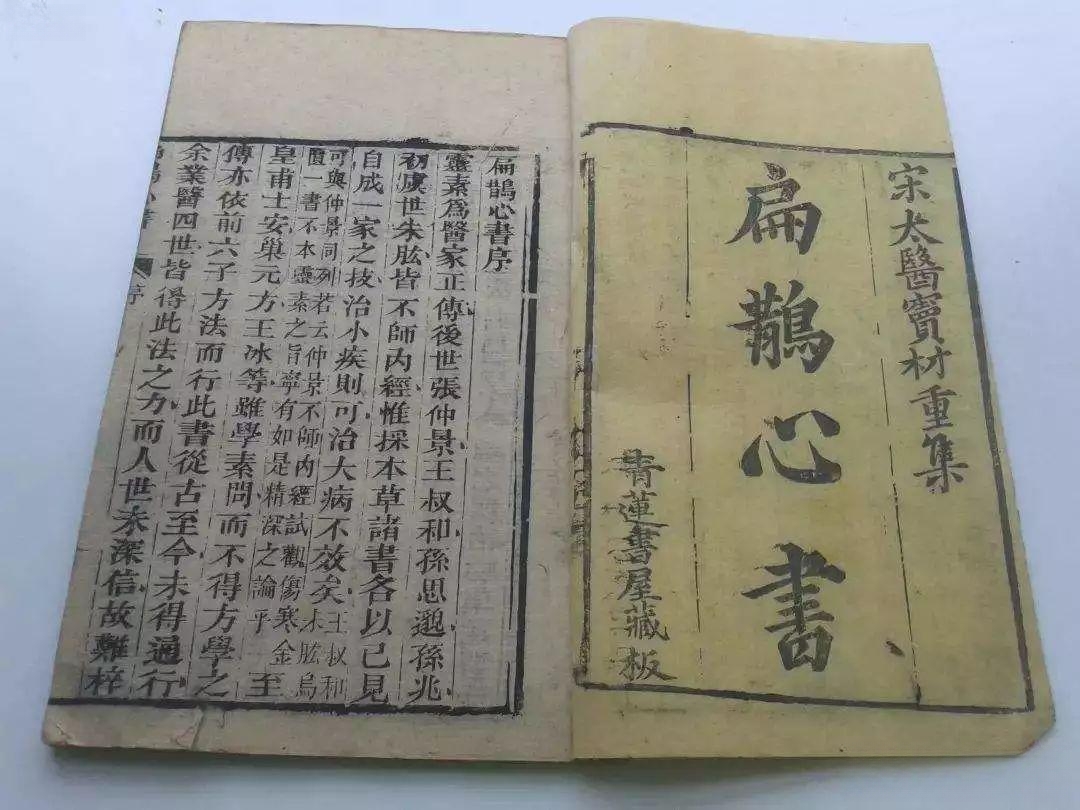 宋太醫竇材重集
扁鵲心書
青蓮書屋藏板
扁鵲心書序
靈素爲醫家正傳後世張仲景王叔和孫思邈孫兆
初虞世朱肱皆不師內經惟採本草諸書各以己見
自成一家之技治小疾則可治大病不效矣王叔和朱肱烏
可與仲景同列若云仲景不師內經試觀傷寒金
匱一書不本靈素之旨寧有如是精深之論乎至
皇甫士安巢元方王冰等雖學素問而不得方學之
傳亦依前六子方法而行此書從古至今未得通行
余業醫四世皆得此法之力而人世未深信故難梓
序